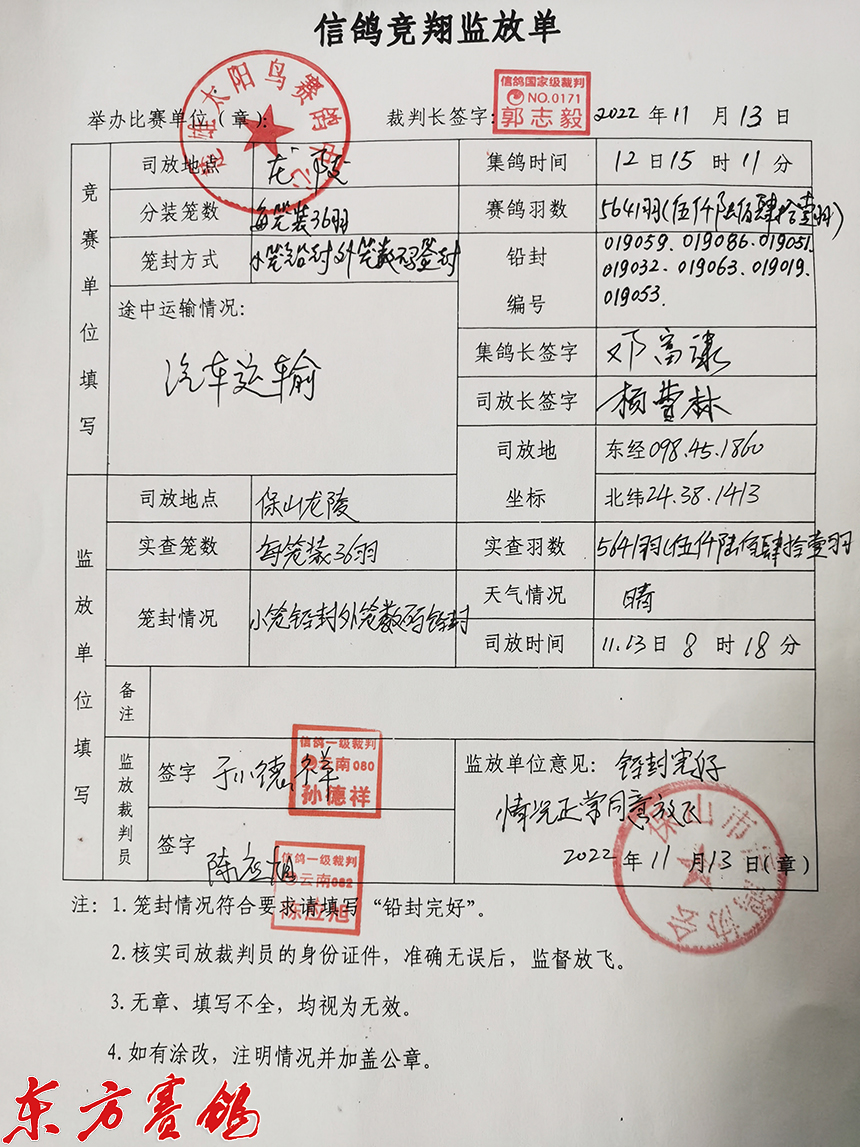 信鸽竞翔监放单
太阳鸟赛鸽中心
信鸽国家级裁判
NO.0171
郭志毅
举办比赛单位(章):
裁判长签字:
2022 年 11 月 13 日
竞赛单位填写
司放地点 龙陵
集鸽时间 12日15时11分
分装笼数 每笼装36羽
赛鸽羽数 5641羽(伍仟陆佰肆拾壹羽)
笼封方式 小笼铅封外笼数码签封
铅封编号
019059.019086.019051.
019032.019063.019019.
019053.
途中运输情况:
汽车运输
集鸽长签字 邓富
司放长签字 林
司放地坐标
东经098.45.1860
北纬24.38.1413
监放单位填写
司放地点 保山龙陵
实查笼数 每笼装36羽
实查羽数 5641羽(伍仟陆佰肆拾壹羽
笼封情况 小笼铅封外笼数码铅封
天气情况 晴
司放时间 11.13日8时18分
备注
监放裁判员
签字 孙德祥
信鸽一级裁判
云南080
孙德祥
签字 陈应旭
信鸽一级裁判
云南082
陈应旭
监放单位意见: 铅封完好
情况正常同意放飞
2022 年 11 月 13 日(章)
保山市信鸽协会
注: 1.笼封情况符合要求请填写“铅封完好”。
2.核实司放裁判员的身份证件，准确无误后，监督放飞。
3.无章、填写不全，均视为无效。
4.如有涂改，注明情况并加盖公章。
东方赛鸽